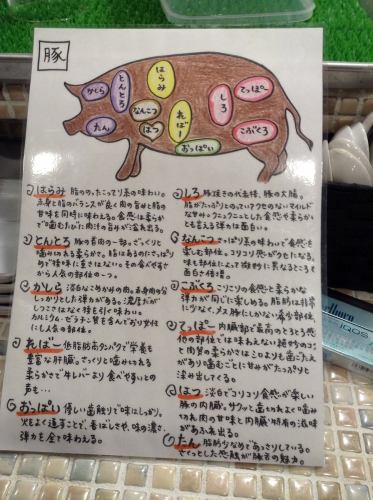 豚
かしら
とんとろ
はらみ
なんこつ
はつ
たん
ればー
しろ
てっぽー
こぶくろ
おっぱい
はらみ 脂ののったこってり系の味わい。
赤身と脂のバランスが良く肉の旨みと脂の
甘味を同時に味わえる。食感は柔らか
で噛むたびに肉汁の旨みが溢れ出る。
とんとろ 豚の首肉の一部。ざっくりと
噛み切れる柔らかさ。脂はあるのにさっぱり
から人気の部位の一つ。
かしら
しっかりとした弾力がある。濃厚だが
しつこさはなく後を引く味わい。
カルシウム・ビタミン質を含んでおり女性
にも人気の部位。
ればー 低脂肪高タンパクで栄養も
豊富な肝臓。ざっくりと噛み切れる
柔らかさで牛レバーより食べやすいとの
声も…
おっぱい 優しい歯触りで味はしっかり。
火をよく通すことで、香ばしさや、味の濃さ、
弾力を全て味わえる。
しろ 豚ホルモンの代表格、豚の大腸。
脂がたっぷりとのっていてクセのないマイルド
な甘み。クニックニッとした食感や柔らかく
とも言える弾力は面白い。
なんこつ さっぱり系の味わいで食感を
楽しむ部位。コリコリ感がクセになる。
味も部位によって微妙に異なるところも
面白さ倍増。
こぶくろ コリコリの食感と柔らかな
弾力が同じに楽しめる。脂肪は非常
に少なく、メス豚にしかない希少部位。
てっぽー 内臓部で最高のとろとろ感
他の部位では味わえない絶妙のコシ
と肉質の柔らかさはこれよりも歯ごたえ
があり噛むごとに甘みがたっぷりと
滲み出してくる。
はつ 淡白でコリコリ食感が楽しい
豚の内臓。サクッと歯切れよく噛み
切れ肉の甘味と内臓特有の滋味
があふれ出る。
たん 脂肪少なめであっさりしている。
ざくっとした感触が豚舌の魅力。
Marlboro